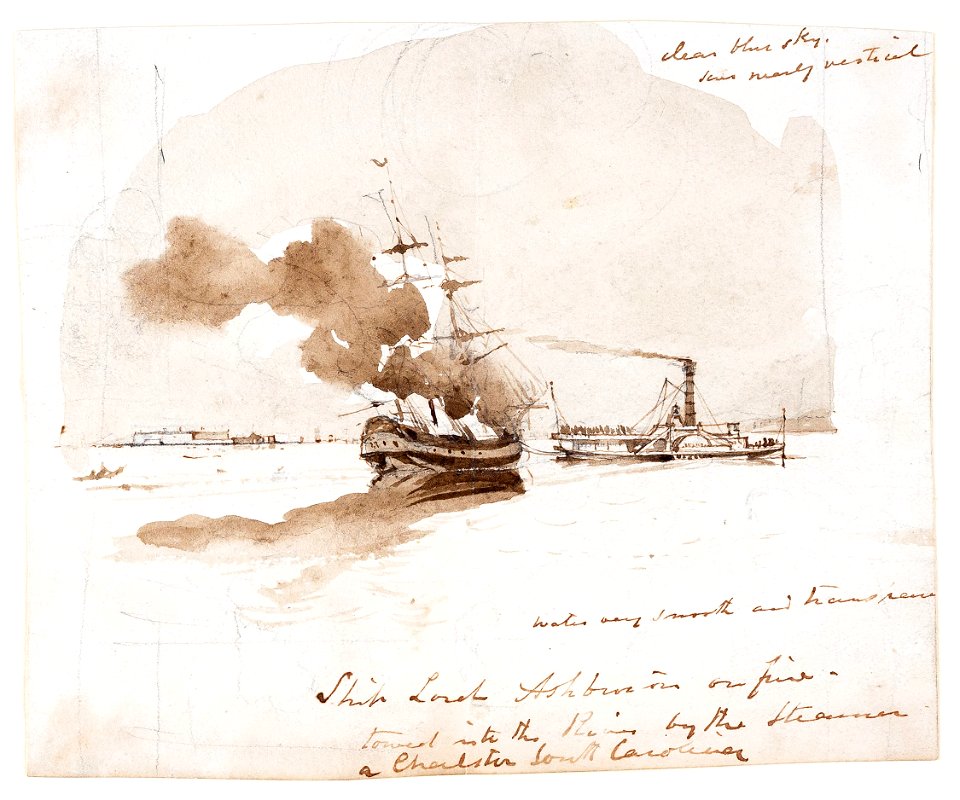 clear blue sky.
sun nearly vertical
water very smooth and transparen
Ship Lord Ashburton on fire -
towed into the River by the Steamer
a Charlston South Carolina